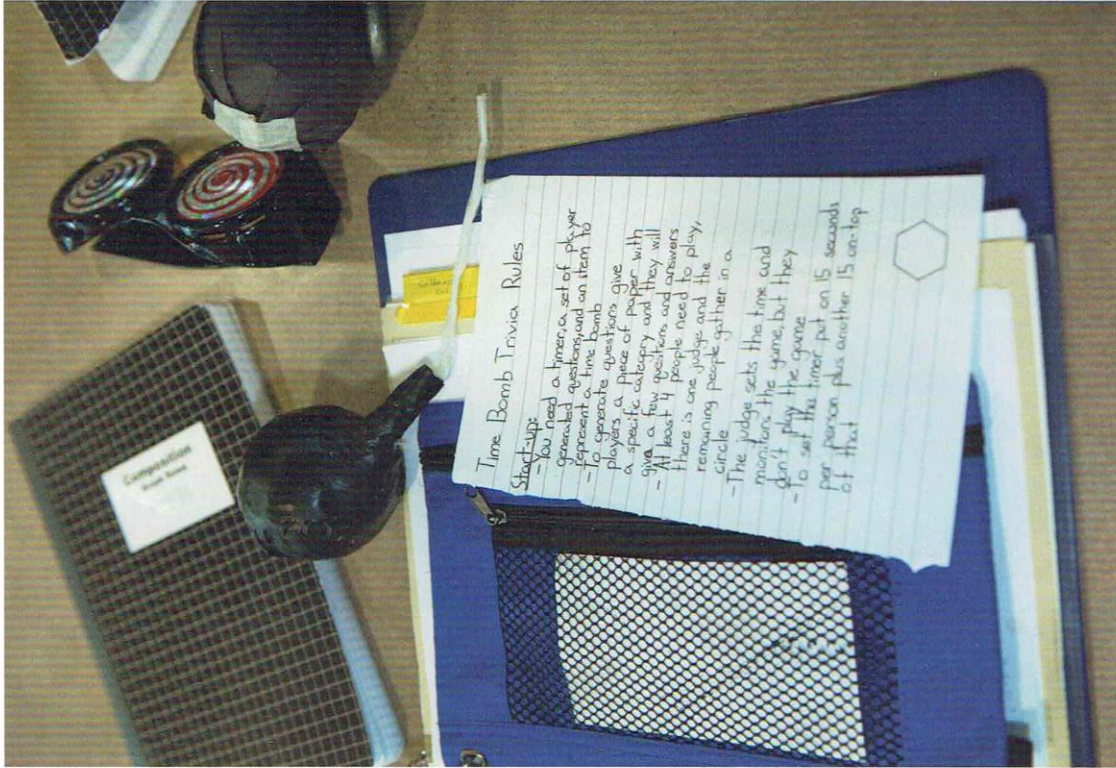 Time Bomb Trivia Rules
Start-up:
- You need a timer, a set of player
generated questions, and an item to
represent a time bomb
- To generate questions give
players a piece of paper with
a specific category and they will
give a few questions and answers
- At least 4 people need to play,
there is one judge and the
remaining people gather in a
circle
- The judge sets the time and
monitors the game, but they
don't play the game
- To set the timer put on 15 seconds
per person plus another 15 on-top
of that
Composition